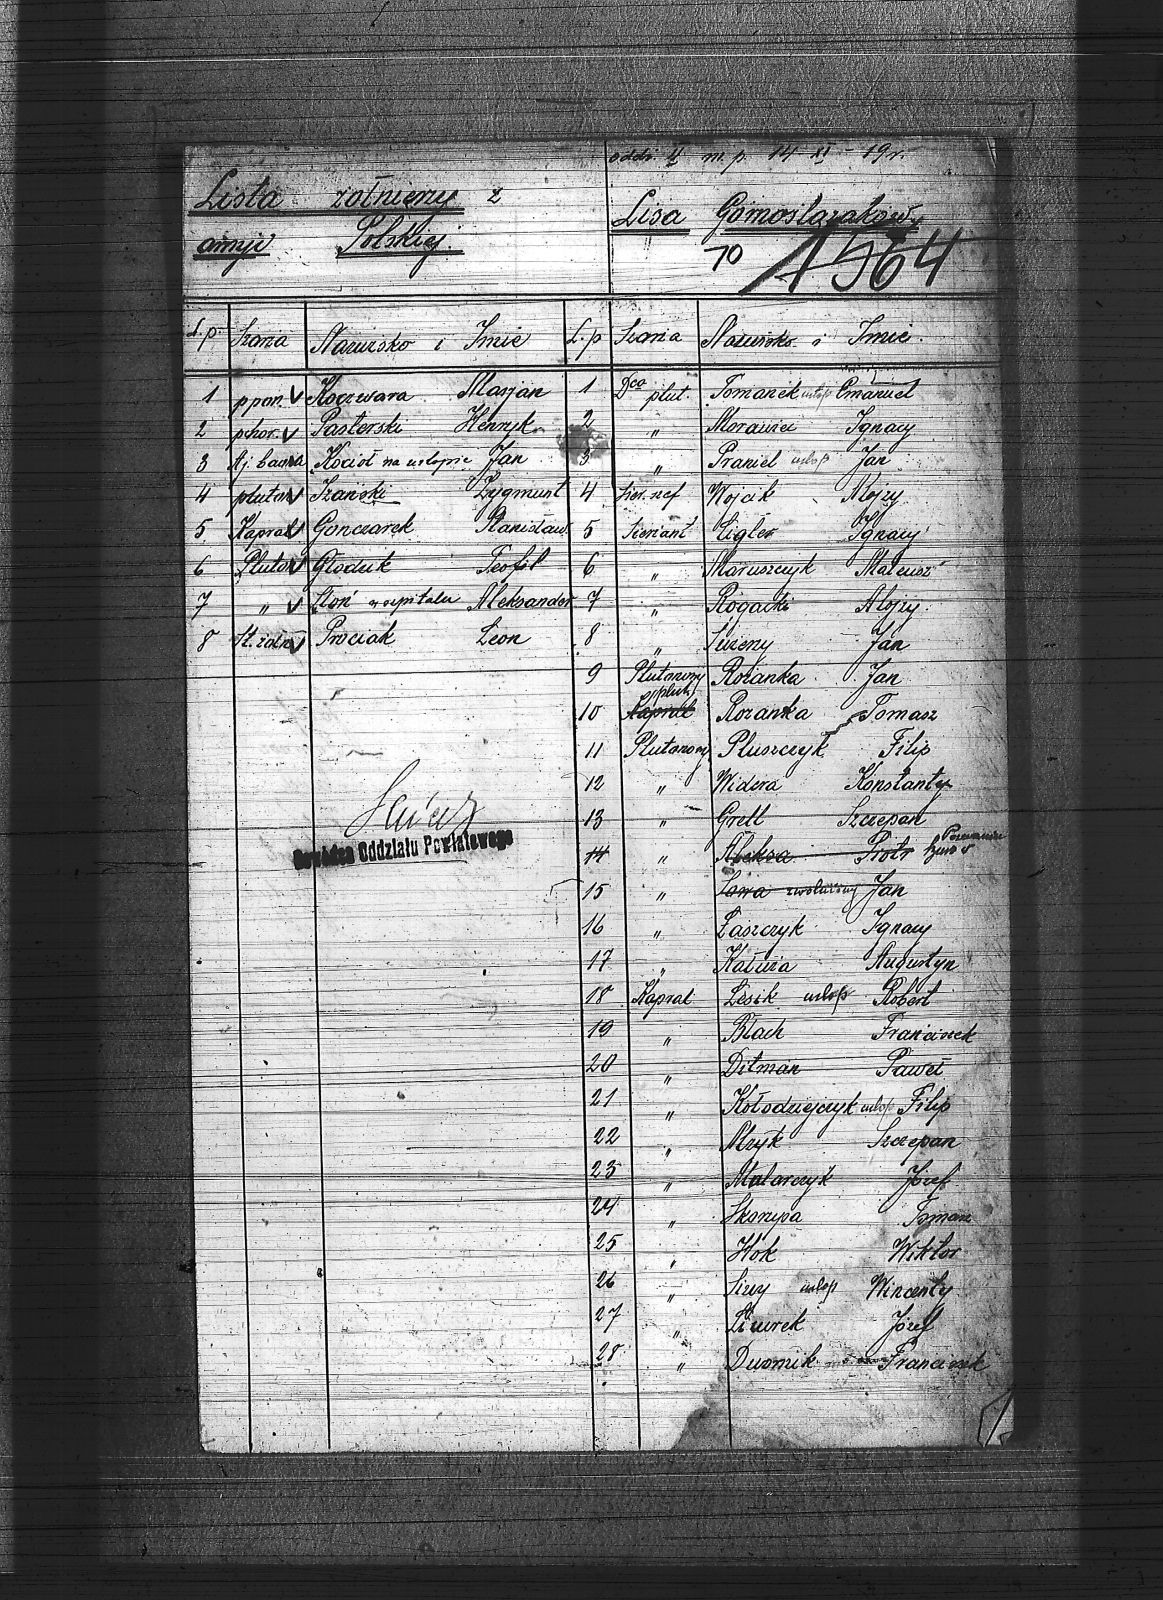 oddz. II m. p. 14 XI 19 r.
Lista żołnierzy z
armji Polskiej.
Lisa Górnoslązaków
70 1564
L.p. Szarża Nazwisko i Imię
1 ppor. V Koczwara Marjan
2 pchor. V Pasterski Henryk
3 Kocioł na urlopie Jan
4 pluton V Szański Zygmunt
5 Kapral V Gonczarek Stanisław
6 Pluton V Głoduk Teofil
7 „ V Słoń w szpitalu Aleksander
8 St. żołn V Prociak Leon
Dowódca Oddziału Powiatowego
L.p Szarża Nazwisko i Imię.
1 Dca plut. Tomanek urlop Emanuel
2 „ Morawiec Ignacy
3 „ Praniel urlop Jan
4 Sier. szef Wojcik Alojzy
5 Sierżant Cigler Ignacy
6 „ Maruszczyk Mateusz
7 „ Rogacki Alojzy
8 „ Jan
9 Plutonowy Rożanka Jan
10 Kapral plut. Rozanka Tomasz
11 Plutonowy Pluszczyk Filip
12 „ Widera Konstanty
13 „ Grell Szczepan
14 „ Aleksa Piotr
15 „ Sowa zwolniony Jan
16 „ Łaszczyk Ignacy
17 „ Kałuża Augustyn
18 Kapral Lesik urlop Robert
19 „ Błach Franciszek
20 „ Ditman Paweł
21 „ Kołodziejczyk urlop Filip
22 „ Mzyk Szczepan
23 „ Malarczyk Józef
24 „ Skorupa Roman
25 „ Hok Wiktor
26 „ Siwy urlop Wincenty
27 „ Józef
28 „ Franciszek